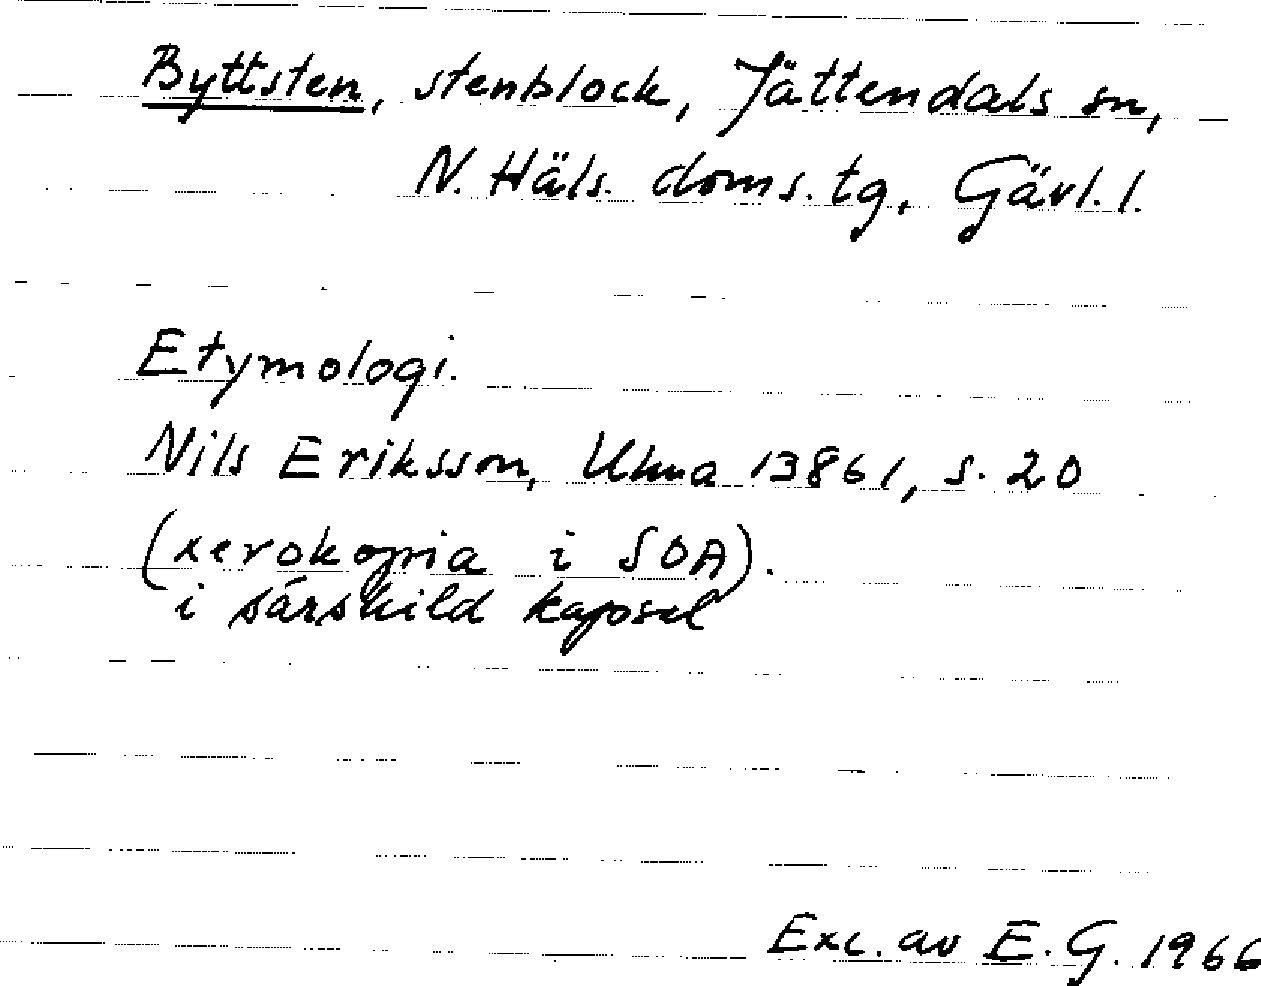 Byttsten, stenblock, Jättendals sn,
N. Häls. doms. tg, Gävl. l.
Etymologi.
Nils Eriksson, Ulma 13861, s. 20
(xerokopia i SOA).
i särskild kapsel
Exc. av E. G. 1966